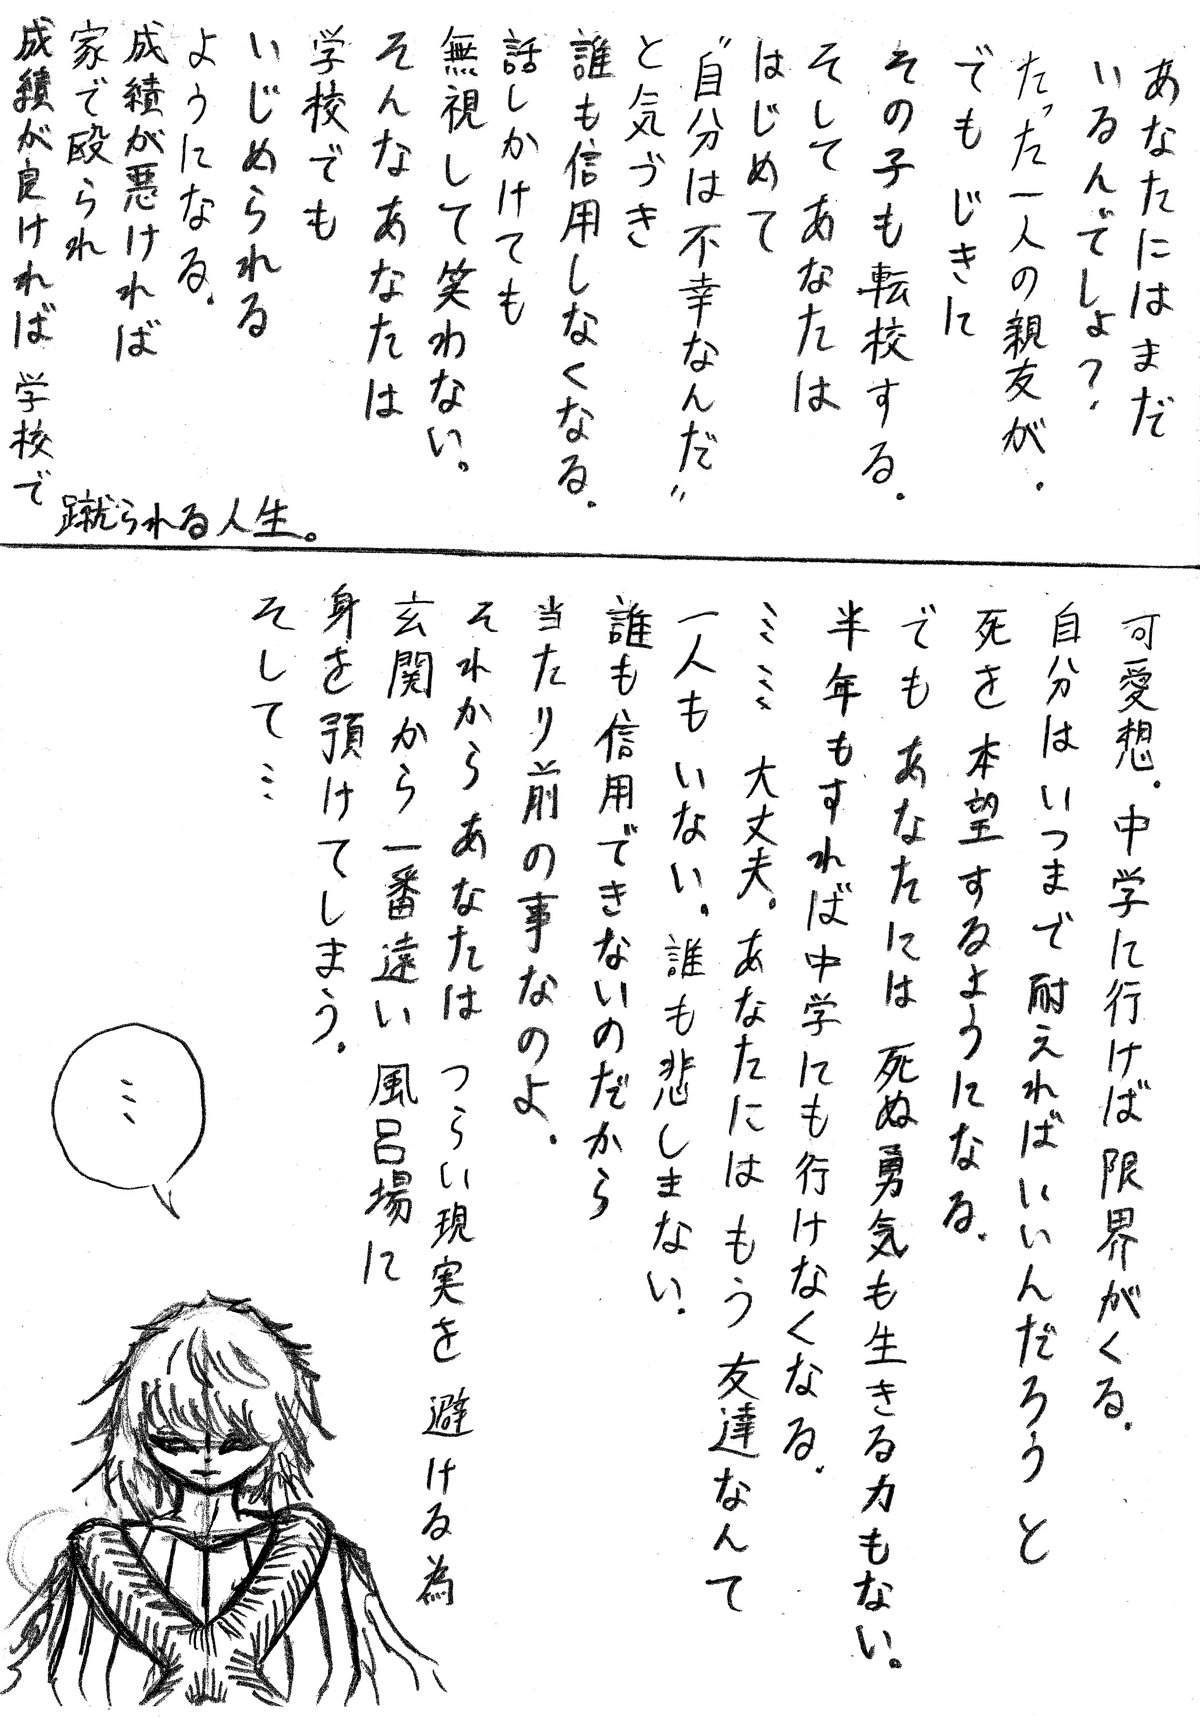 あなたにはまだ
いるんでしょ?
たった一人の親友が.
でも じきに
その子も転校する.
そしてあなたは
はじめて
“自分は不幸なんだ”
と気づき
誰も信用しなくなる.
話しかけても
無視して笑わない.
そんなあなたは
学校でも
いじめられる
ようになる.
成績が悪ければ
家で殴られ
成績が良ければ 学校で
蹴られる人生。
可愛想. 中学に行けば限界がくる.
自分はいつまで耐えればいいんだろう と
死を本望するようになる.
でも あなたには 死ぬ勇気も生きる力もない.
半年もすれば中学にも行けなくなる.
…… 大丈夫. あなたにはもう 友達なんて
一人もいない. 誰も悲しまない.
誰も信用できないのだから
当たり前の事なのよ.
それから あなたは つらい現実を 避ける為
玄関から一番遠い 風呂場に
身を預けてしまう.
そして…
…